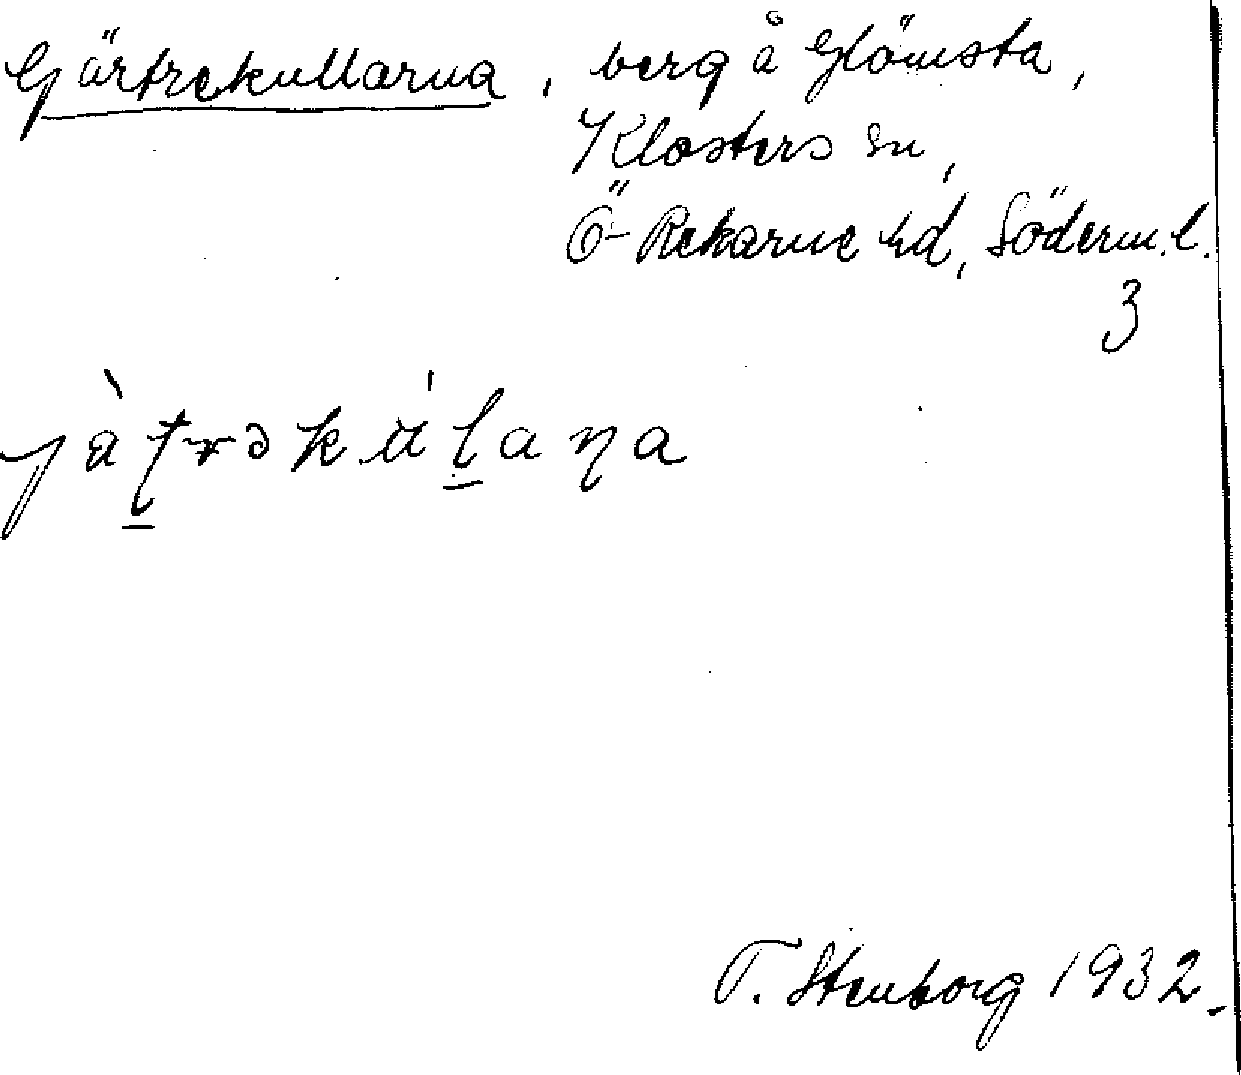 Gärtrekullarna, berg å Glömsta,
Klosters sn,
Ö-Rekarne hd, Söderm.l.
3
T. Stenborg 1932.